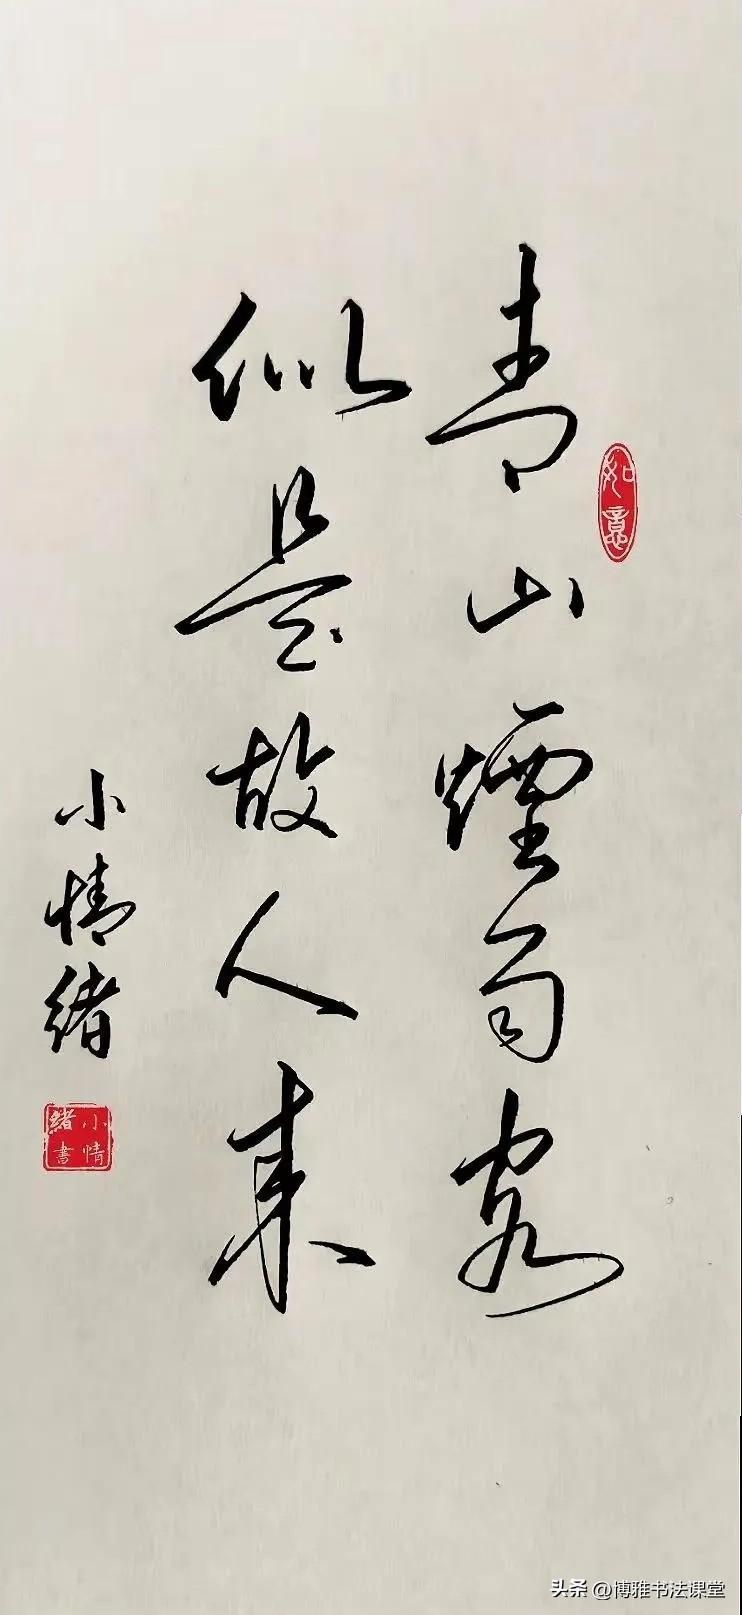 青山煙雨客
似是故人来
小情緒
如意
小情緒書
头条 @博雅书法课堂